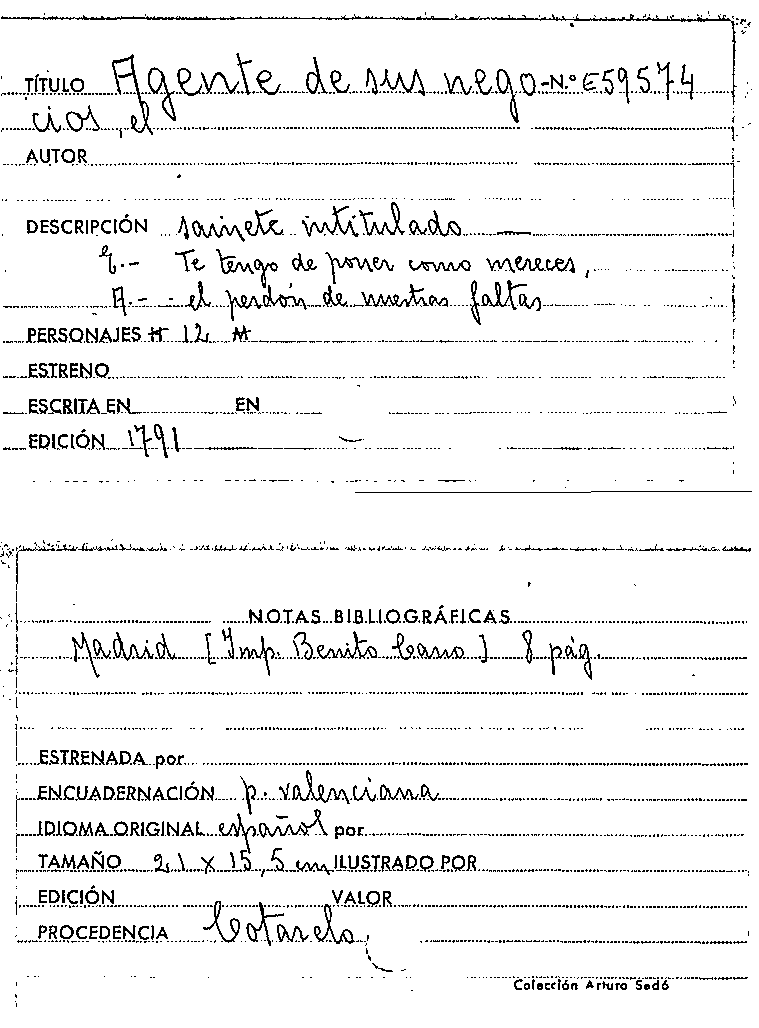 TÍTULO Agente de sus nego- N.º E59574
cios, el
AUTOR
DESCRIPCIÓN sainete intitulado —
E.- Te tengo de poner como mereces,
A.- - el perdón de nuestras faltas
PERSONAJES H 12 M
ESTRENO
ESCRITA EN EN
EDICIÓN 1791
NOTAS BIBLIOGRÁFICAS
Madrid [Imp. Benito Cano] 8 pág.
ESTRENADA por
ENCUADERNACIÓN p. valenciana
IDIOMA ORIGINAL español por
TAMAÑO 21 x 15,5 cm ILUSTRADO POR
EDICIÓN VALOR
PROCEDENCIA Cotarelo
Colección Arturo Sedó